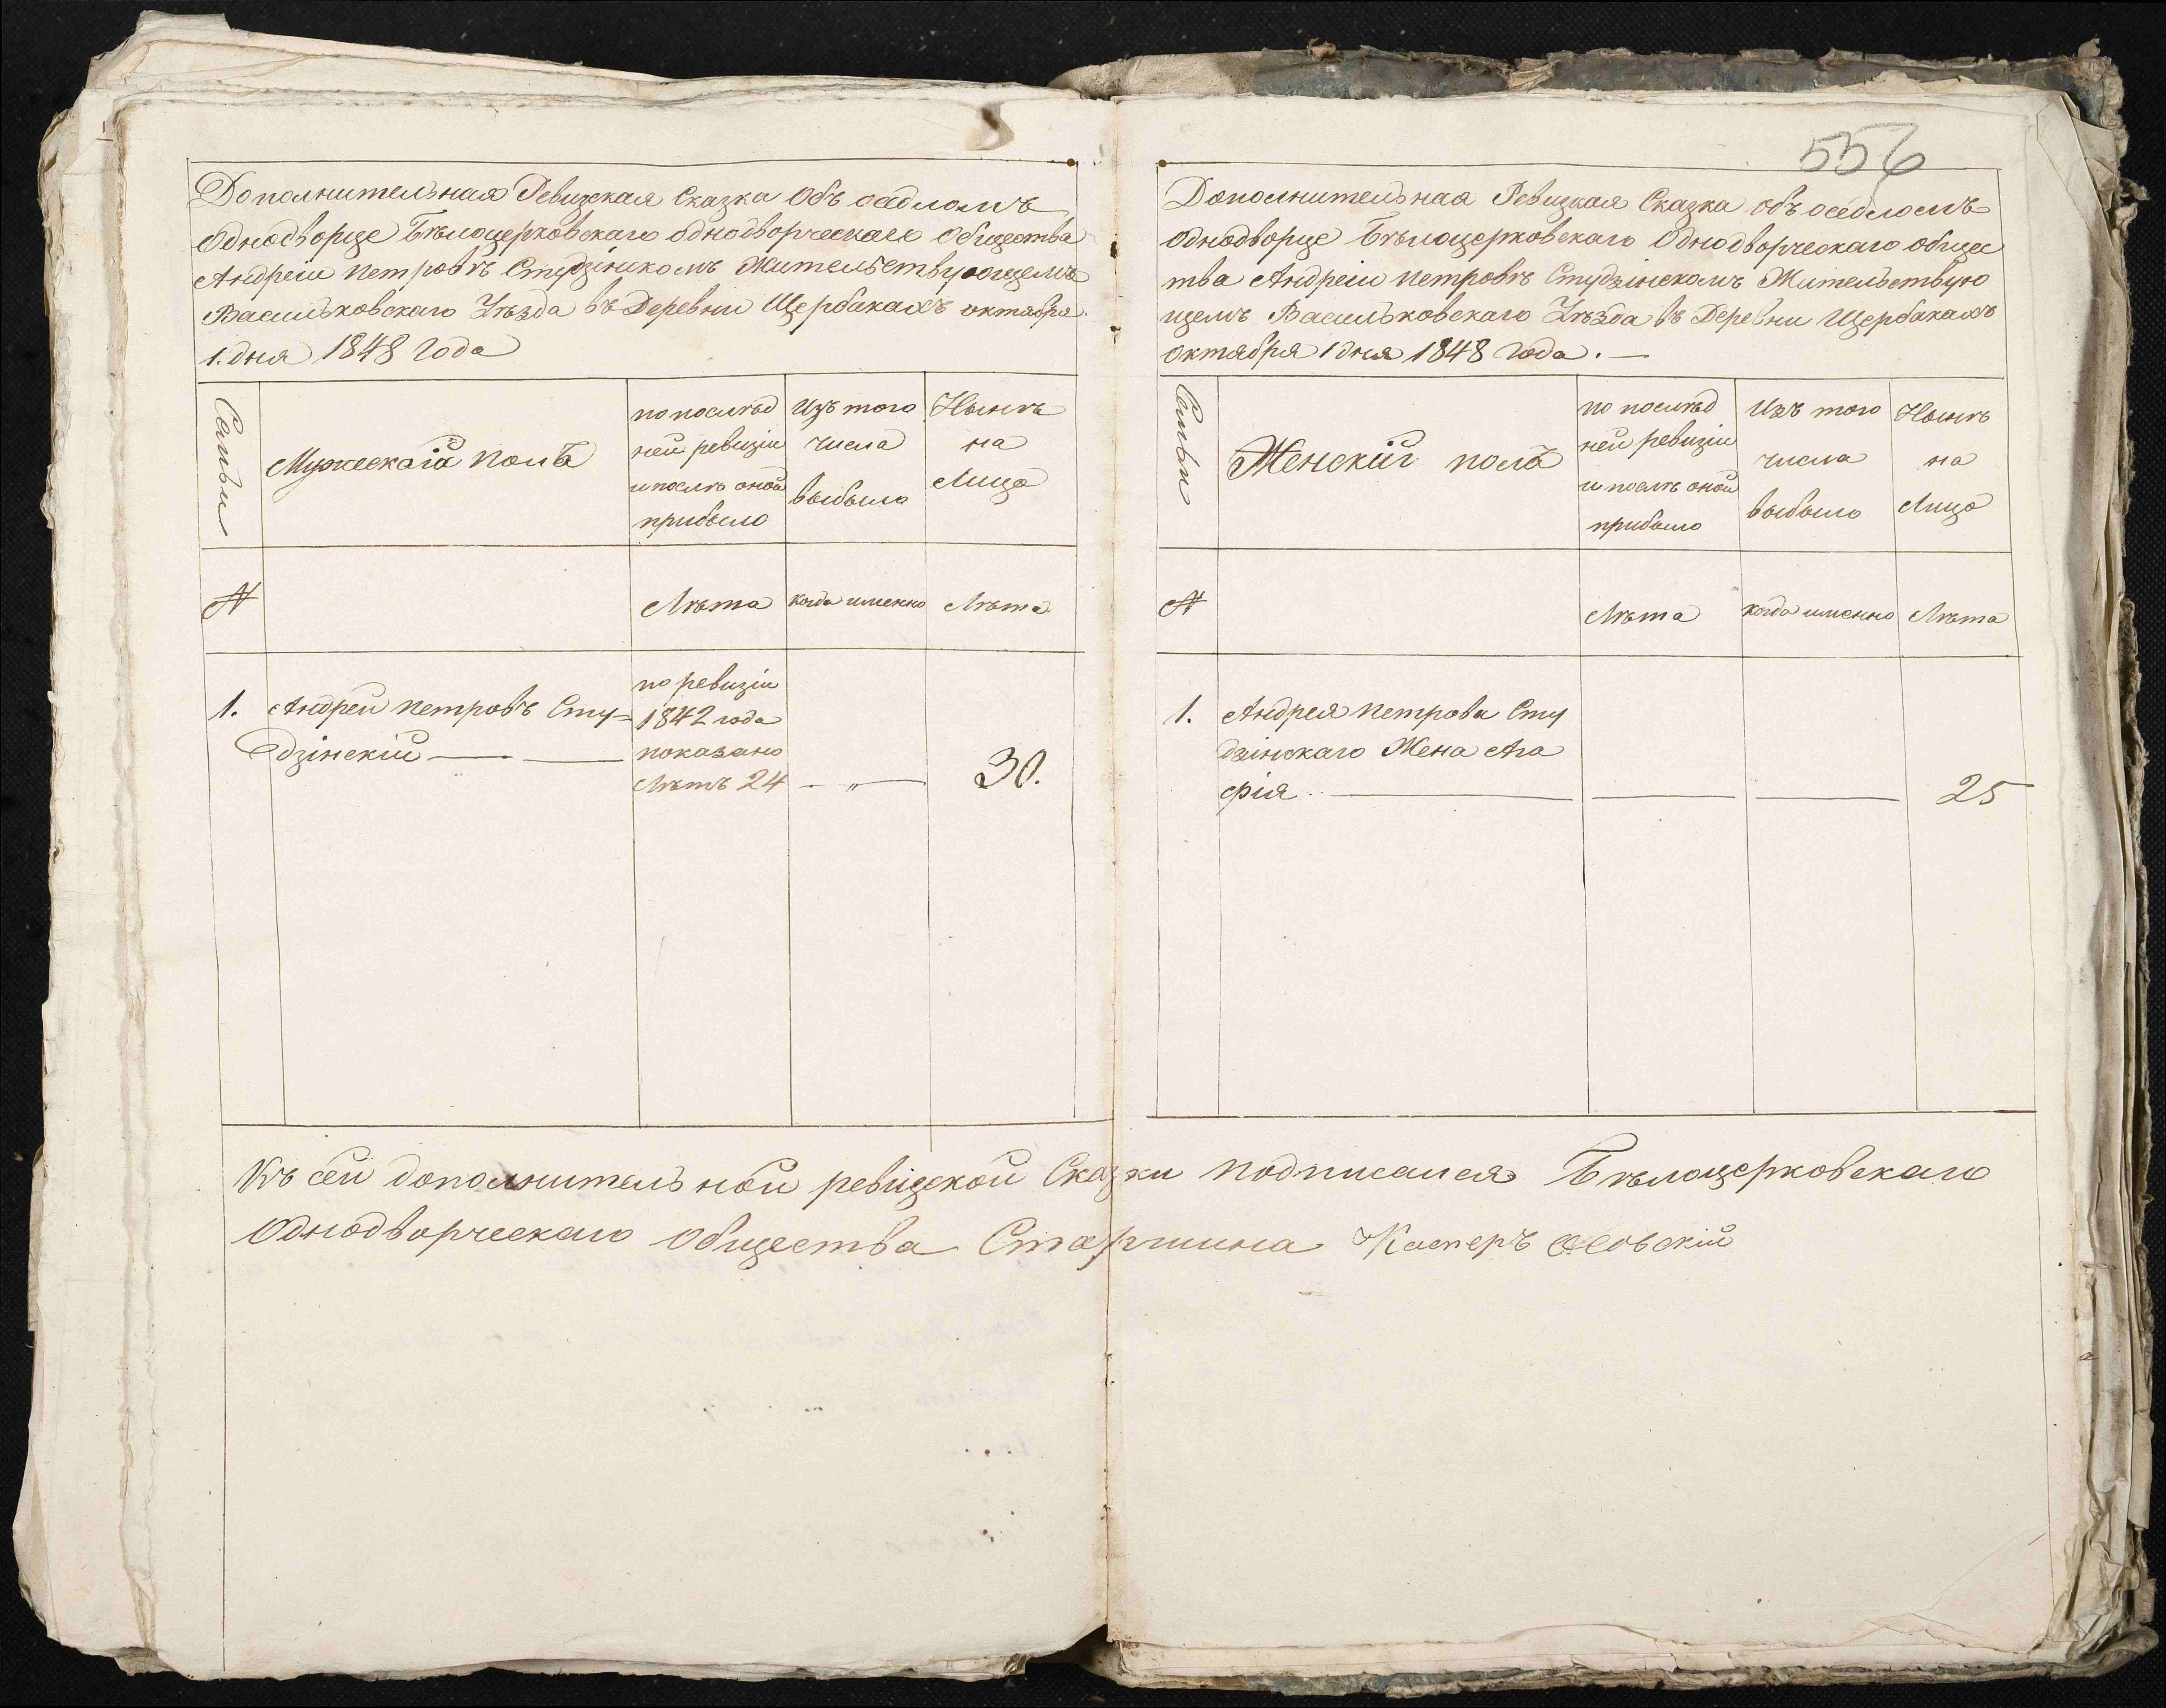 Дополнительная Ревизская Сказка Объ оседломъ
Однодворце Бѣлоцерковскаго однодворческаго Общества
Андреи Петровѣ Студзінскомъ Жительствующемъ
Васильковскаго Уѣзда въ Деревни Щербакахъ октября
1. дня 1848 Года
Семьи
Мужескаій Полъ
по послѣд
ней ревизіи
и послѣ оной
прибыло
Изъ того
числа
выбыло
Нынѣ
на
Лицо
№
Лѣта
когда именно
Лѣта
1. Андрей Петровъ Сту=
дзінскій
по ревизіи
1842 года
показано
Лѣтъ 24
— „ —
30.
556
Дополнительная Ревизкая Сказка объ оседломъ
Однодворце Бѣлоцерковскаго Однодворческаго общес
тва Андреи Петровѣ Студзинскомъ Жительствую
щемъ Васильковскаго Уѣзда въ Деревни Щербакахъ
Октября 1 дня 1848 Года. —
Семьи
Женскій полъ
по послѣд
ней ревизіи
и послѣ оной
прибыло
Изъ того
числа
выбыло
Нынѣ
на
Лицо
№
Лѣта
когда именно
Лѣта
1. Андрея Петрова Сту
дзінскаго Жена Ага
фія
25
Къ сей дополнительной ревизской Сказки подписался Бѣлоцерковскаго
Однодворческаго Общества Старшина Касперъ